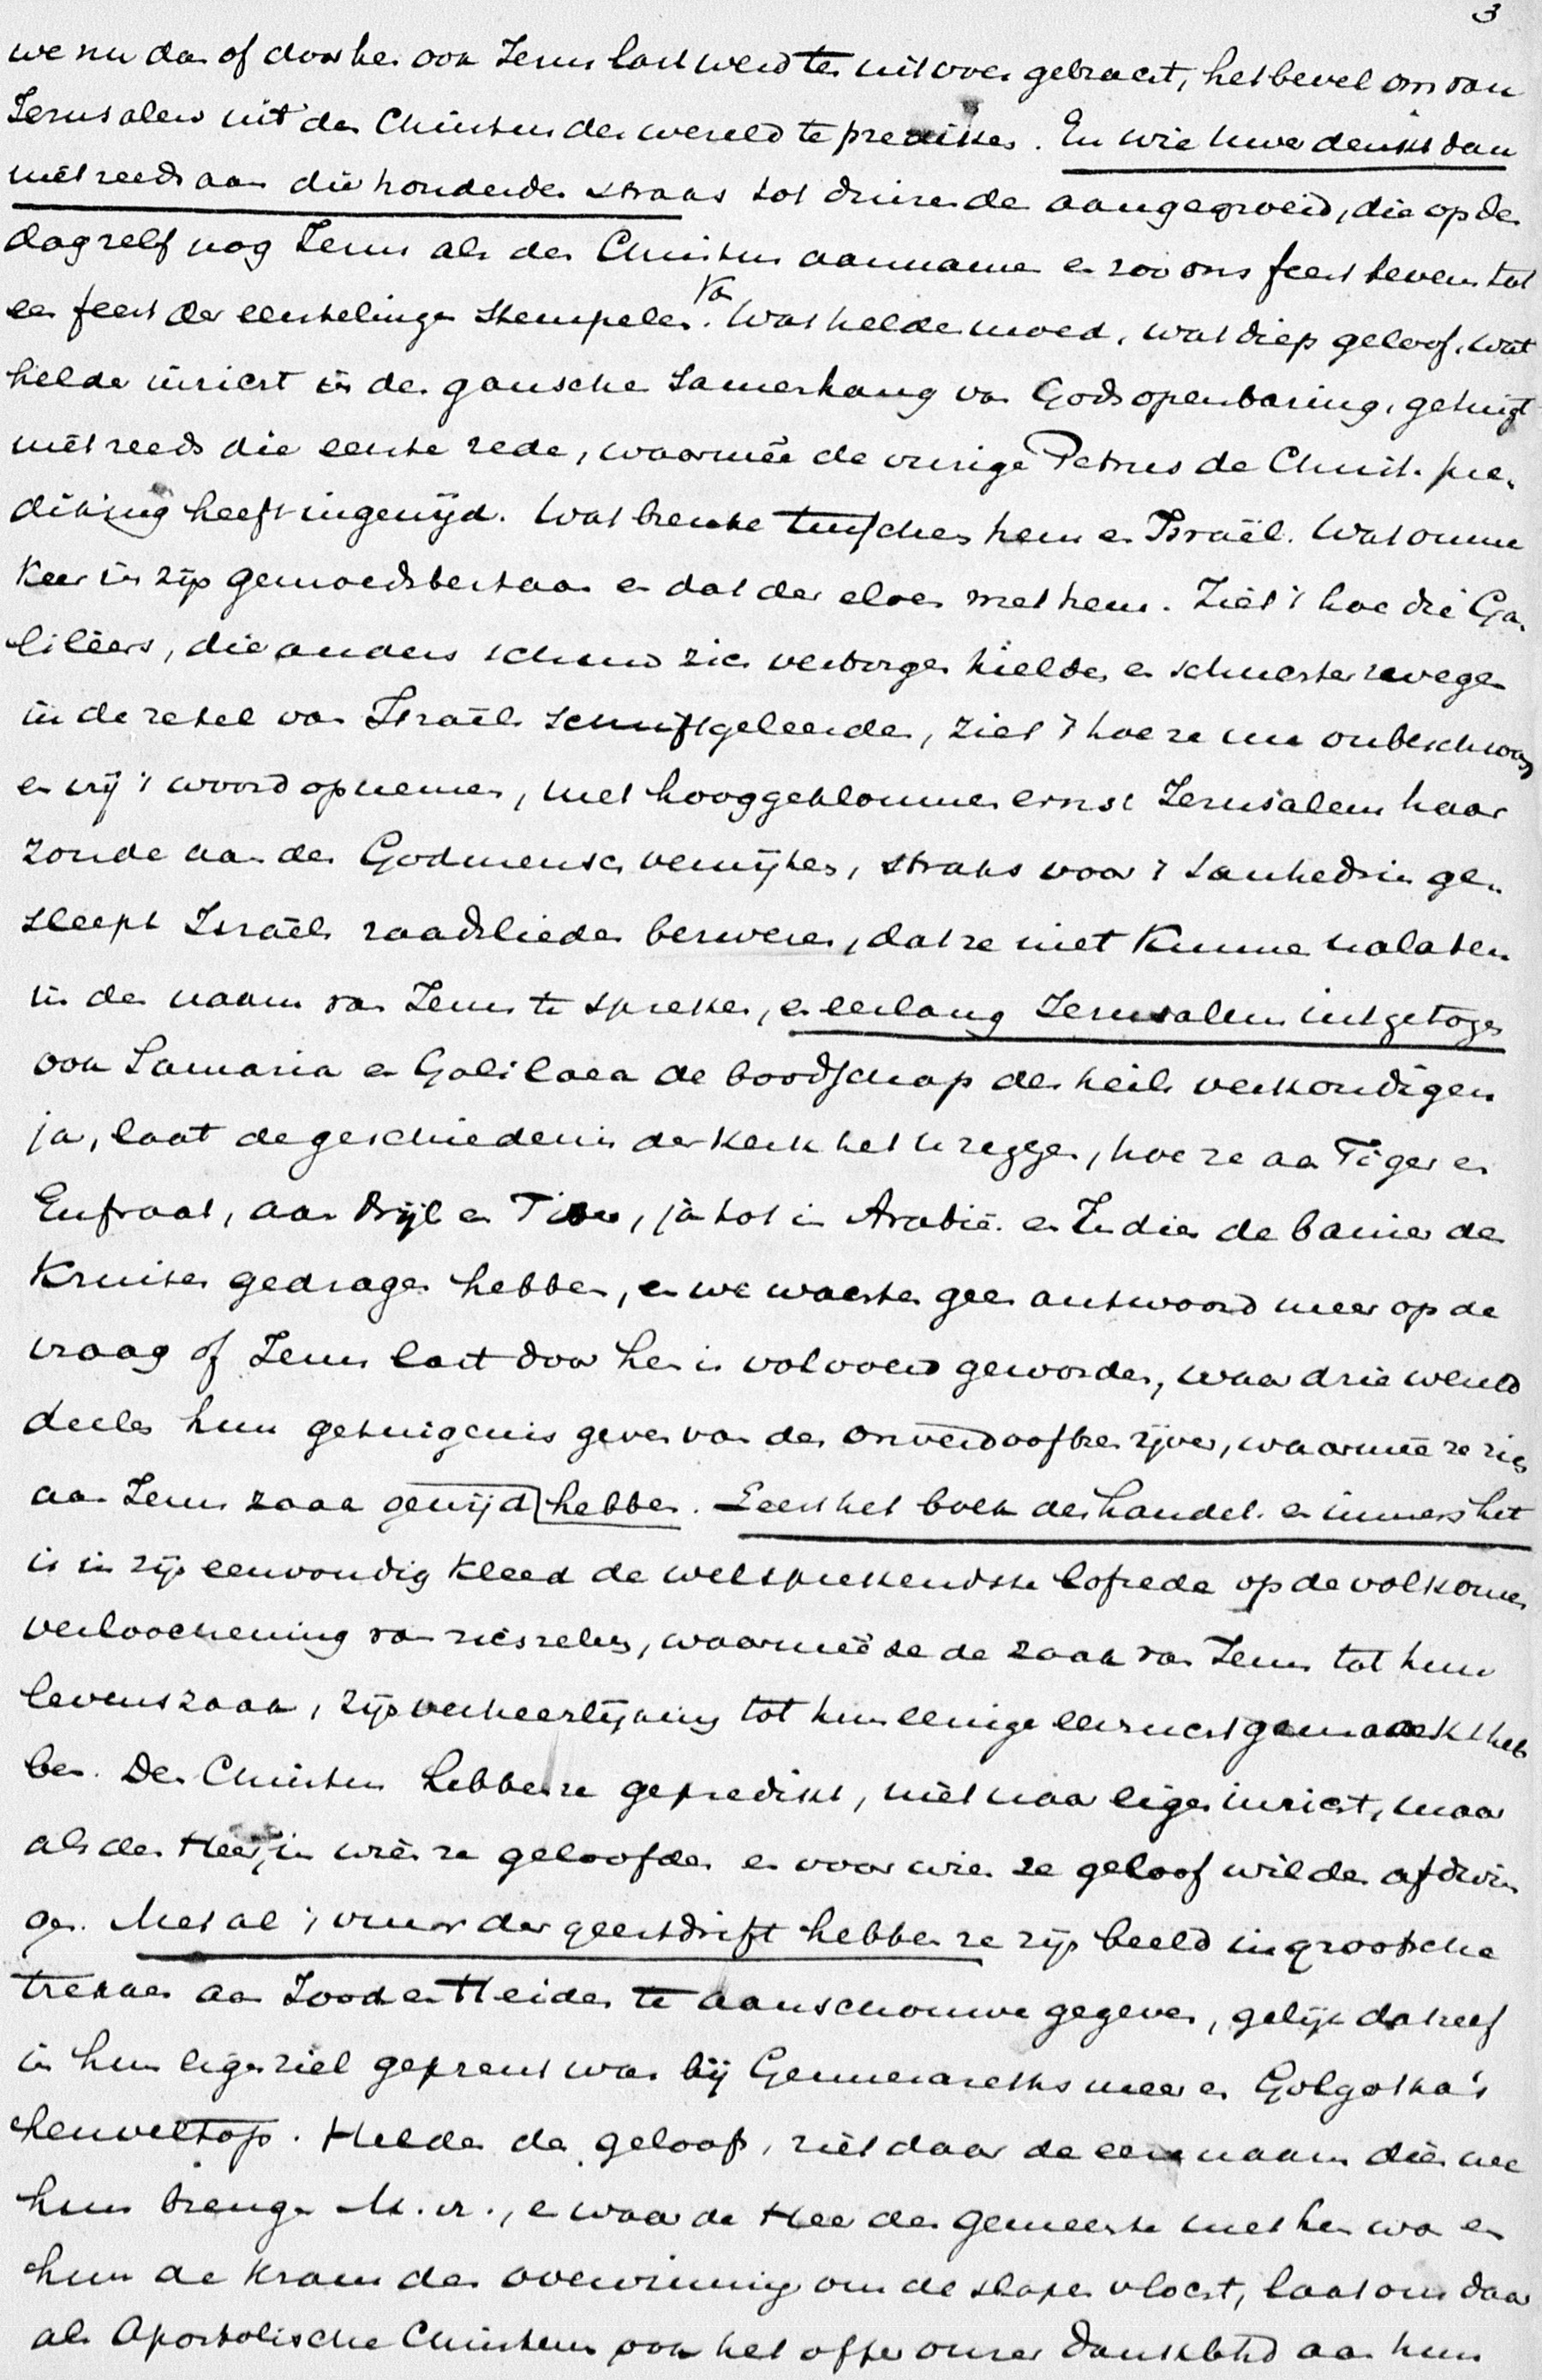 3
we nu dan of door hen ook Jezus last werd ten uitvoer gebracht, het bevel om van
Jerusalem uit den Christus der wereld te prediken. En wie Uwer denkt dan
niet reeds aan die honderden straks tot duizenden aangegroeid, die op den
dag zelf nog Jezus als den Christus aannamen en zoo ons feest tevens tot
een feest der eerstelingen stempelen. Wat heldenmoed, wat diep geloof, wat
helder inzicht in den ganschen samenhang van Gods openbaring, getuigt
niet reeds die eerste rede, waarmêe de vurige Petrus de Christ. pre-
diking heeft ingewijd. Wat breuke tusschen hem en Israël. Wat omme
keer in zijn gemoedsbestaan en dat der elven met hem. Ziet 't hoe die Ga-
lileërs, die anders schuw zich verborgen hielden en schuchter zwegen
in de zetel van Israëls schriftgeleerden, ziet 't hoe ze nu onbeschroomd
en vrij 't woord opnemen, met hooggeklommen ernst Jerusalem haar
zonde aan den Godmensch verwijten, straks voor 't Sanhedrin ge-
sleept Israëls raadslieden bezweren, dat ze niet kunnen nalaten
in den naam van Jezus te spreken, en eerlang Jerusalem uitgetogen
ook Samaria en Galilaea de boodschap des heils verkondigen
ja, laat de geschiedenis der kerk het U zeggen, hoe ze aan Tiger en
Eufraat, aan Nijl en Tiber, ja tot in Arabië en Indien de banier des
Kruises gedragen hebben, en we wachten geen antwoord meer op de
vraag of Jezus last door hen is volvoerd geworden, waar drie wereld
deelen hun getuigenis geven van den onverdoofbren ijver, waarmêe ze zich
aan Jezus zaak gewijd hebben. Leest het boek der handel. en immers het
is in zijn eenvoudig kleed de welsprekendste lofrede op de volkomen
verloochening van zichzelven, waarmêe ze de zaak van Jezus tot hun
levenszaak, zijn verheerlijking tot hun eenige eerzucht gemaakt heb
ben. Den Christus hebben ze gepredikt, niet naar eigen inzicht, maar
als den Heer, in wien ze geloofden en voor wien ze geloof wilden afdwin
gen. Met al 't vuur der geestdrift hebben ze zijn beeld in grootsche
trekken aan Jood en Heiden te aanschouwen gegeven, gelijk dat zelf
in hun eigen ziel geprent was bij Gennesareths meer en Golgotha's
heuveltop. Helden des geloofs, ziet daar de eernaam dien we
hun brengen M. vr., en waar de Heer der gemeente met hen was en
hun de krans der overwinning om de slapen vlocht, laat ons daar
als Apostolische Christenen ook het offer onzer dankbrhd aan hun